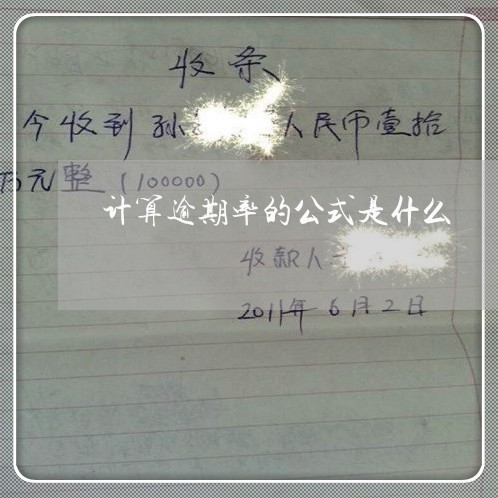 收条
今收到孙 人民币壹拾
万元整（100000）
计算逾期率的公式是什么
收款人
2011年6月2日